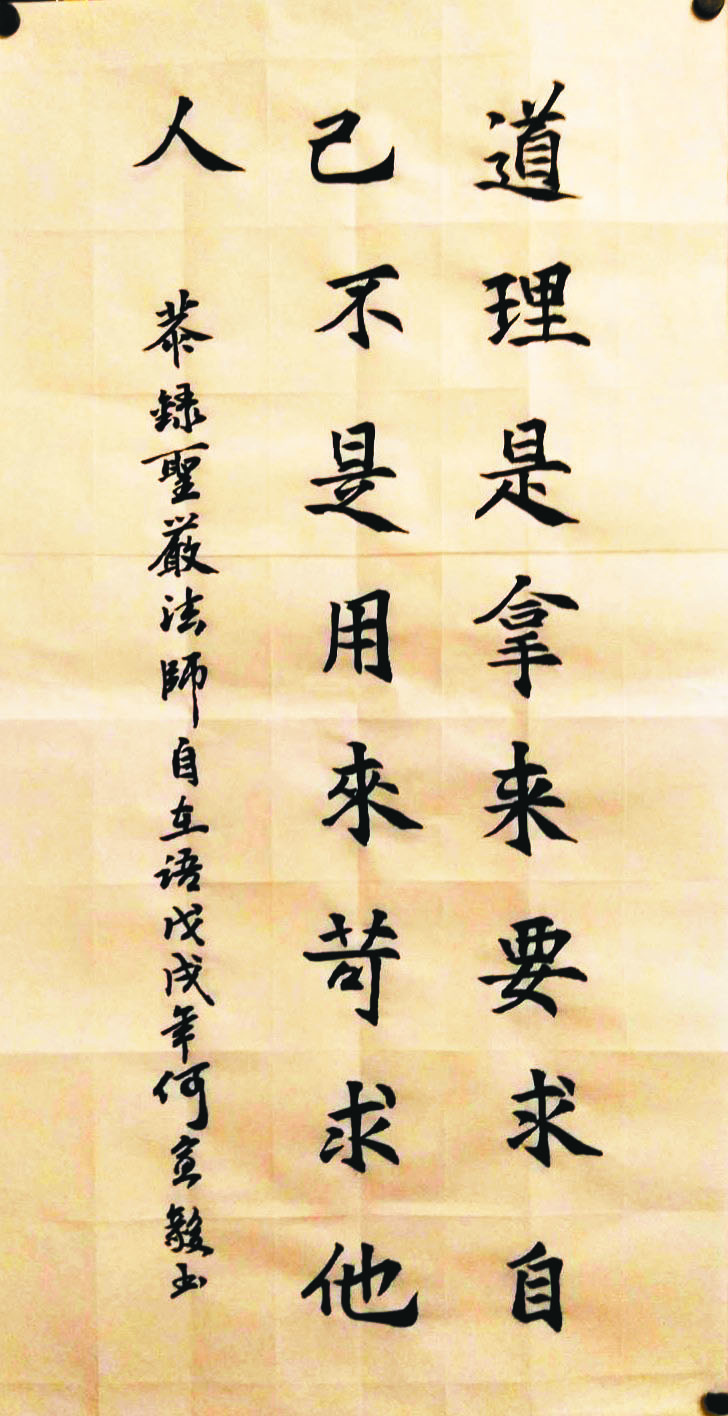 道理是拿来要求自
己不是用來苛求他
人
恭録聖厳法師自在语戊戌年何宣毅书